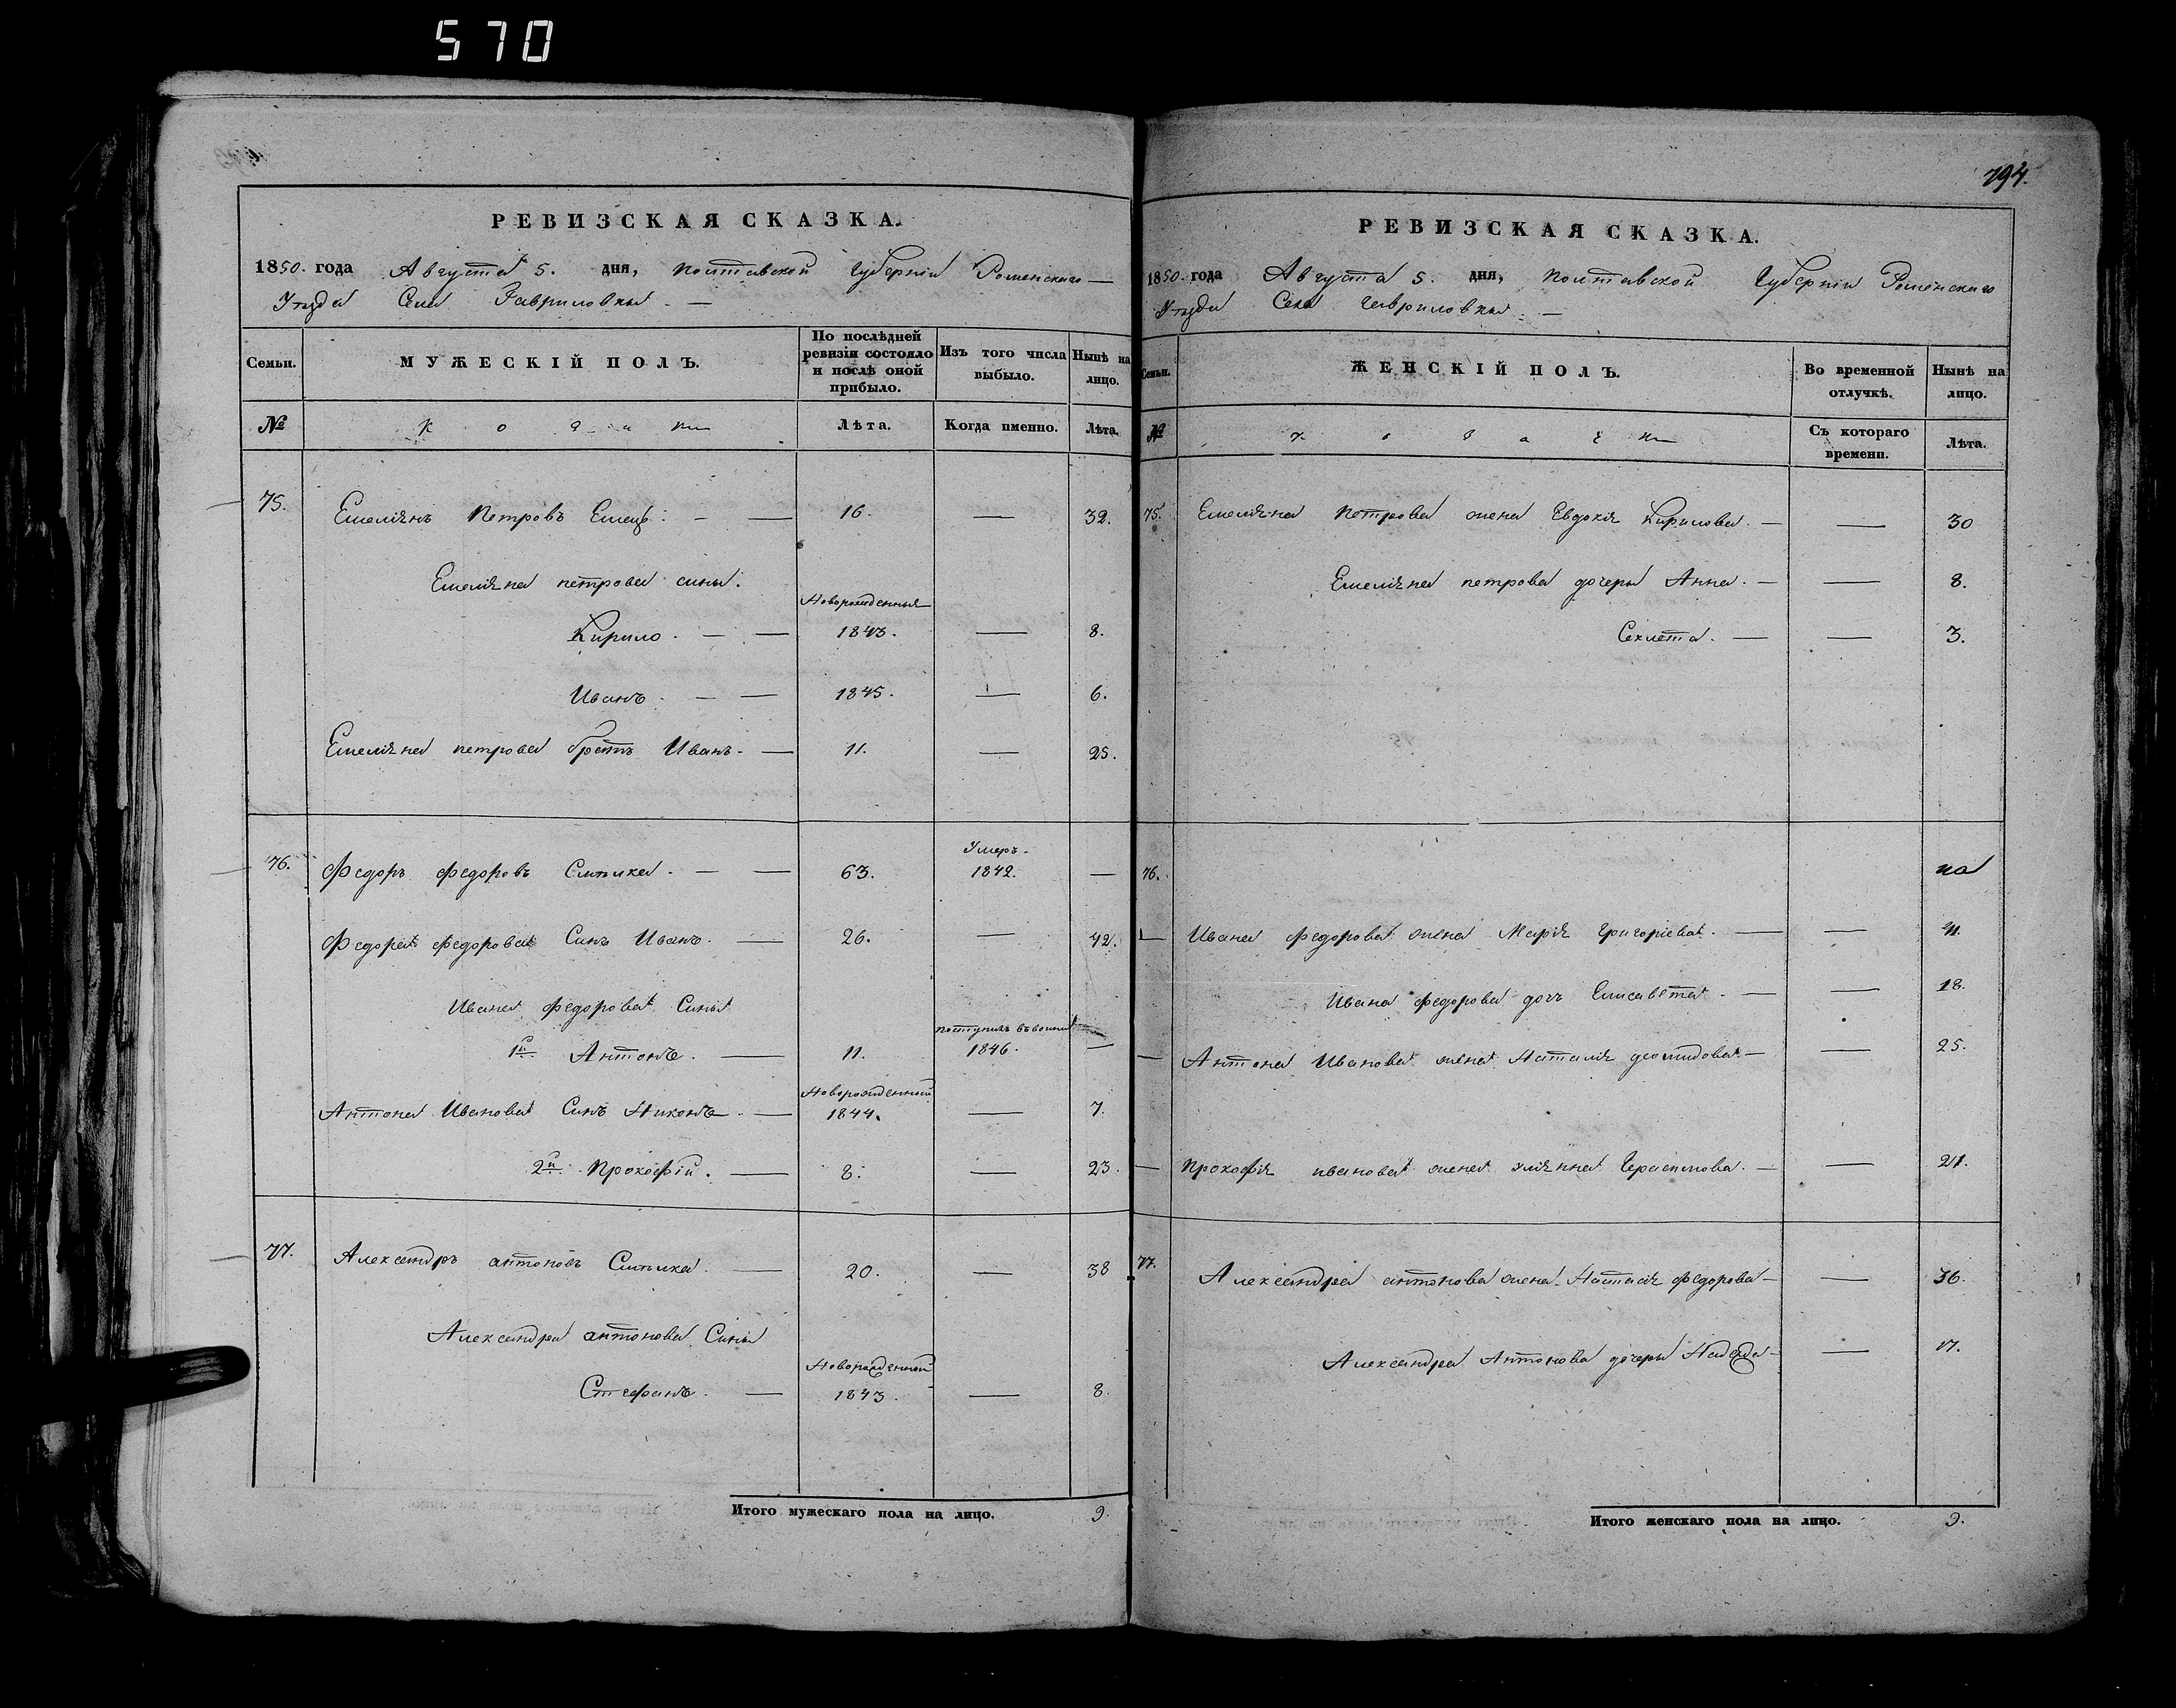 570
794.
РЕВИЗСКАЯ СКАЗКА.
1850. года Августа 5. дня, Полтавской Губерніи Роменскаго
Уезда Села Гавриловки.
Семьи.
МУЖЕСКІЙ ПОЛЪ.
По послѣдней ревизіи состояло и послѣ оной прибыло.
Изъ того числа выбыло.
Нынѣ на лицо.
№
Лѣта.
Когда именно.
Лѣта.
75. Емеліянъ Петровъ Емецъ. — 16. — 32.
Емеліяна петрова сины.
Новорожденныя
Кирило. — 1843. — 8.
Иванъ. — 1845. — 6.
Емеліяна петрова братъ Иванъ. — 11. — 25.
Умеръ.
76. Федоръ федоровъ — 63. 1842. —
Федора федорова Синъ Иванъ. — 26. — 42.
Ивана федорова Сины
поступилъ
1й Антонъ. — 11. 1846. —
Новорожденный
Антона Иванова Синъ Никонъ — 1844. — 7.
2й Прокофій. — 8. — 23.
77. Александръ антоновъ — 20. — 38
Александра антонова Сины
Новорожденный
Стефанъ. — 1843. — 8.
Итого мужескаго пола на лицо. 9.
РЕВИЗСКАЯ СКАЗКА.
1850. года Августа 5. дня, Полтавской Губерніи Роменскаго
Уезда Села Гавриловки. —
Семьи.
ЖЕНСКІЙ ПОЛЪ.
Во временной отлучкѣ.
Нынѣ на лицо.
№
Съ котораго времени.
Лѣта.
75. Емеліяна Петрова жена Евдокія Кирилова. — — 30
Емеліяна петрова дочери Анна. — — 8.
Секлета. — — 3.
76.
— Ивана федорова жена Марія Григоріева. — — 41.
Ивана федорова дочь Елисавета. — — 18.
— Антона Иванова жена Наталія — — 25.
— Прокофія иванова жена Уліянна Герасимова. — — 21.
77. Александра антонова жена Наталія федорова — — 36.
Александра Антонова дочери — — 17.
Итого женскаго пола на лицо. 9.